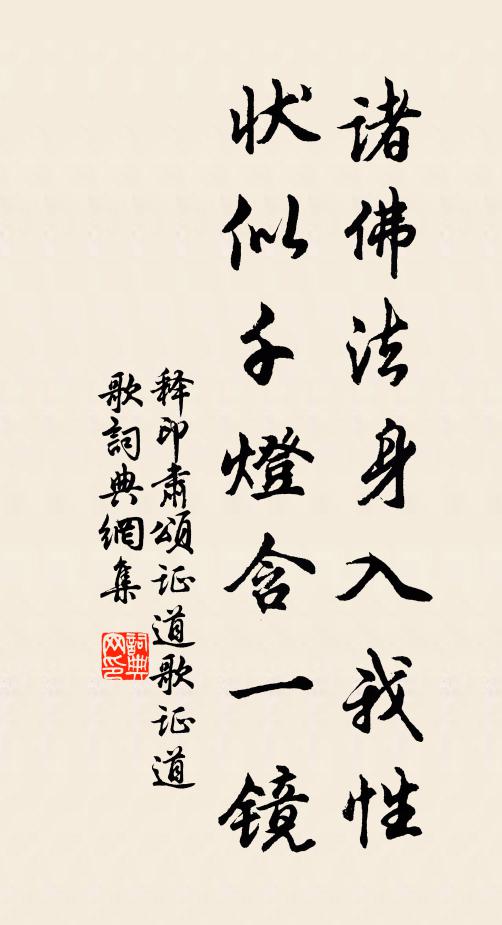 诸佛法身入我性
状似千燈含一镜
释印肃颂证道歌证道
歌詞典網集
詞典网印